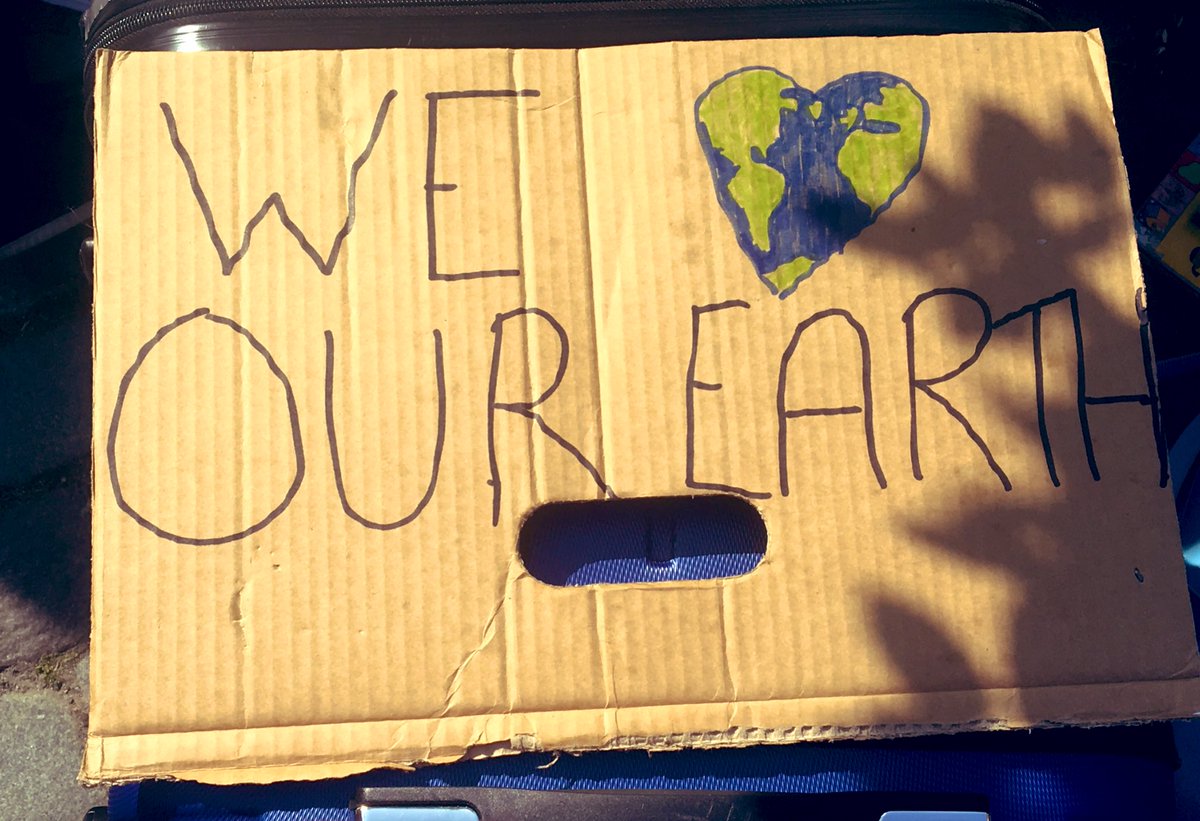 WE
OUR EARTH